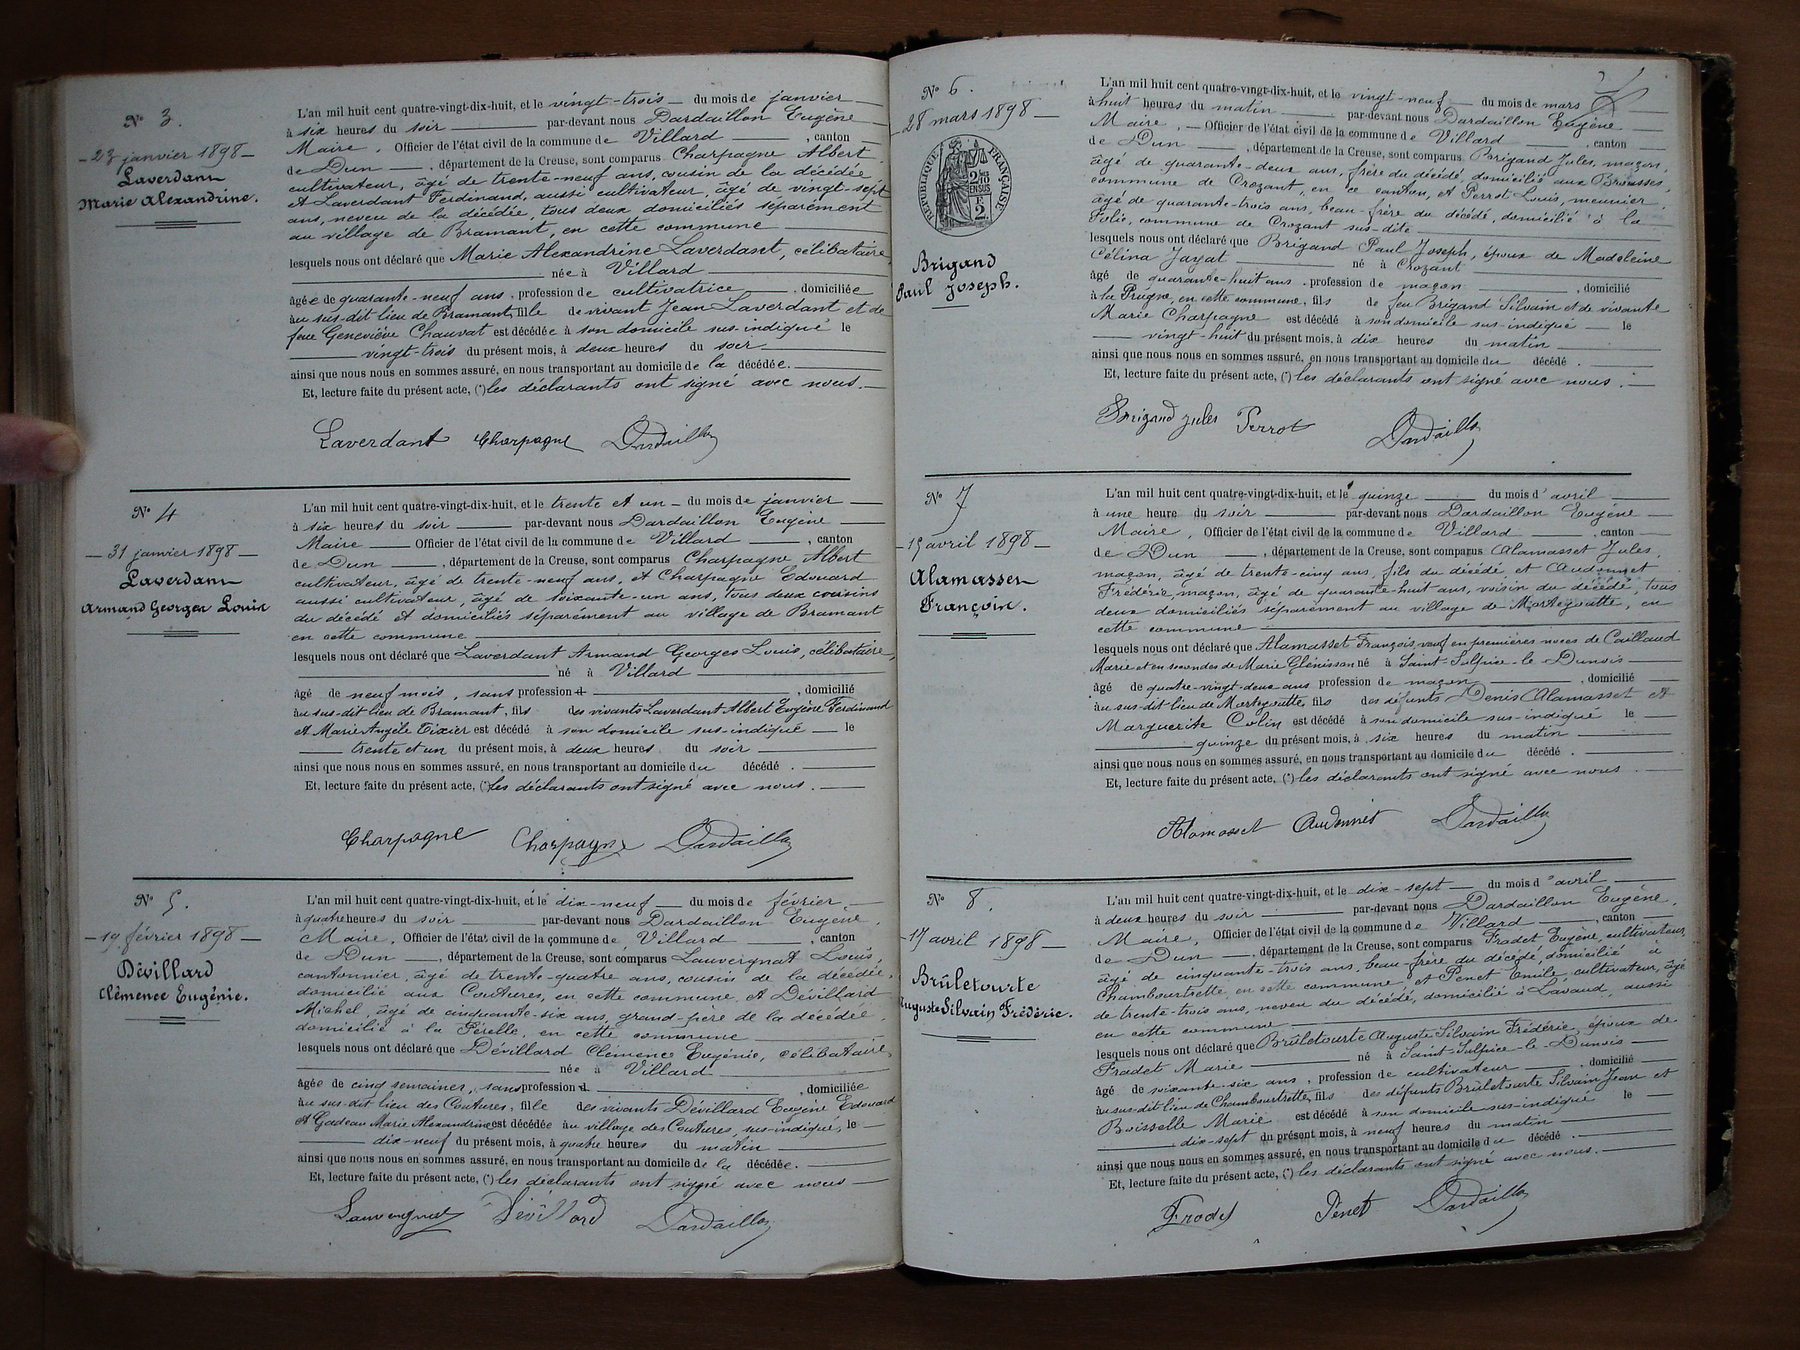 Nº 3.
23 janvier 1898
Laverdant
Marie Alexandrine.
L'an mil huit cent quatre-vingt-dix-huit, et le vingt-trois du mois de janvier
à six heures du soir par-devant nous Dardaillon Eugène
Maire, Officier de l'état civil de la commune de Villard, canton
de Dun, département de la Creuse, sont comparus Charpagne Albert,
cultivateur, âgé de trente-neuf ans, cousin de la décédée
et Laverdant Ferdinand, aussi cultivateur, âgé de vingt-sept
ans, neveu de la décédée, tous deux domiciliés séparément
au village de Bramant, en cette commune
lesquels nous ont déclaré que Marie Alexandrine Laverdant, célibataire,
née à Villard
âgée de quarante-neuf ans, profession de cultivatrice, domiciliée
au sus-dit lieu de Bramant, fille de vivant Jean Laverdant et de
feue Geneviève Chauvat est décédée à son domicile sus-indiqué le
vingt-trois du présent mois, à deux heures du soir
ainsi que nous nous en sommes assuré, en nous transportant au domicile de la décédée.
Et, lecture faite du présent acte, (*) les déclarants ont signé avec nous.
Laverdant Charpagne Dardaillon
Nº 4
31 janvier 1898
Laverdant
Armand Georges Louis
L'an mil huit cent quatre-vingt-dix-huit, et le trente et un du mois de janvier
à six heures du soir par-devant nous Dardaillon Eugène
Maire Officier de l'état civil de la commune de Villard, canton
de Dun, département de la Creuse, sont comparus Charpagne Albert
cultivateur, âgé de trente-neuf ans, et Charpagne Edouard
aussi cultivateur, âgé de soixante-un ans, tous deux cousins
du décédé et domiciliés séparément au village de Bramant
en cette commune
lesquels nous ont déclaré que Laverdant Armand Georges Louis, célibataire,
né à Villard
âgé de neuf mois, sans profession, domicilié
au sus-dit lieu de Bramant, fils des vivants Laverdant Albert Eugène Ferdinand
et Marie Angèle Tixier est décédé à son domicile sus-indiqué le
trente et un du présent mois, à deux heures du soir
ainsi que nous nous en sommes assuré, en nous transportant au domicile du décédé.
Et, lecture faite du présent acte, (*) les déclarants ont signé avec nous.
Charpagne Charpagne Dardaillon
Nº 5.
19 février 1898
Dévillard
Clémence Eugénie.
L'an mil huit cent quatre-vingt-dix-huit, et le dix-neuf du mois de février,
à quatre heures du soir par-devant nous Dardaillon Eugène,
Maire, Officier de l'état civil de la commune de Villard, canton
de Dun, département de la Creuse, sont comparus Lauvergnat Louis,
cantonnier, âgé de trente-quatre ans, cousin de la décédée,
domicilié aux Coutures, en cette commune et Dévillard
Michel, âgé de cinquante-six ans, grand-père de la décédée,
domicilié à la Péelle, en cette commune
lesquels nous ont déclaré que Dévillard Clémence Eugénie, célibataire,
née à Villard
âgée de cinq semaines, sans profession, domiciliée
au sus-dit lieu des Coutures, fille des vivants Dévillard Eugène Edouard
et Gadeau Marie Alexandrine est décédée au village des Coutures, sus-indiqué, le
dix-neuf du présent mois, à quatre heures du matin
ainsi que nous nous en sommes assuré, en nous transportant au domicile de la décédée.
Et, lecture faite du présent acte, (*) les déclarants ont signé avec nous
Lauvergnat Dévillard Dardaillon
Nº 6.
28 mars 1898
RÉPUBLIQUE FRANÇAISE
Brigand
Paul Joseph.
L'an mil huit cent quatre-vingt-dix-huit, et le vingt-neuf du mois de mars
à huit heures du matin par-devant nous Dardaillon Eugène
Maire, Officier de l'état civil de la commune de Villard, canton
de Dun, département de la Creuse, sont comparus Brigand Jules, maçon,
âgé de quarante-deux ans, frère du décédé, domicilié aux Brousses,
commune de Crozant, en ce canton, et Perrot Louis, meunier,
âgé de quarante-trois ans, beau-frère du décédé, domicilié à la
Folie, commune de Crozant sus-dite
lesquels nous ont déclaré que Brigand Paul Joseph, époux de Madeleine
Célina Jayat né à Crozant
âgé de quarante-huit ans, profession de maçon, domicilié
à la Prugne, en cette commune, fils de feu Brigand Silvain et de vivante
Marie Charpagne est décédé à son domicile sus-indiqué le
vingt-huit du présent mois, à dix heures du matin
ainsi que nous nous en sommes assuré, en nous transportant au domicile du décédé.
Et, lecture faite du présent acte, (*) les déclarants ont signé avec nous.
Brigand Jules Perrot Dardaillon
Nº 7
15 avril 1898
Alamasset
François.
L'an mil huit cent quatre-vingt-dix-huit, et le quinze du mois d'avril
à une heure du soir par-devant nous Dardaillon Eugène
Maire, Officier de l'état civil de la commune de Villard, canton
de Dun, département de la Creuse, sont comparus Alamasset Jules,
maçon, âgé de trente-cinq ans, fils du décédé et Audonnet
Frédéric, maçon, âgé de quarante-huit ans, voisin du décédé, tous
deux domiciliés séparément au village de Mortegoutte, en
cette commune
lesquels nous ont déclaré que Alamasset François, veuf en premières noces de Caillaud
Marie et en secondes de Marie Glénisson né à Saint-Sulpice-le-Dunois
âgé de quatre-vingt-deux ans profession de maçon, domicilié
au sus-dit lieu de Mortegoutte, fils des défunts Denis Alamasset et
Marguerite Colin est décédé à son domicile sus-indiqué le
quinze du présent mois, à six heures du matin
ainsi que nous nous en sommes assuré, en nous transportant au domicile du décédé.
Et, lecture faite du présent acte, (*) les déclarants ont signé avec nous.
Alamasset Audonnet Dardaillon
Nº 8.
17 avril 1898
Brûletourte
Auguste Silvain Frédéric.
L'an mil huit cent quatre-vingt-dix-huit, et le dix-sept du mois d'avril
à deux heures du soir par-devant nous Dardaillon Eugène,
Maire, Officier de l'état civil de la commune de Villard, canton
de Dun, département de la Creuse, sont comparus Fradet Eugène, cultivateur,
âgé de cinquante-trois ans, beau-frère du décédé, domicilié à
Chambourtrette, en cette commune et Penet Emile, cultivateur, âgé
de trente-trois ans, neveu du décédé, domicilié à Lavaud, aussi
en cette commune
lesquels nous ont déclaré que Brûletourte Auguste Silvain Frédéric, époux de
Fradet Marie né à Saint-Sulpice-le-Dunois
âgé de soixante-six ans, profession de cultivateur, domicilié
au sus-dit lieu de Chambourtrette, fils des défunts Brûletourte Silvain Jean et
Boisselle Marie est décédé à son domicile sus-indiqué le
dix-sept du présent mois, à neuf heures du matin
ainsi que nous nous en sommes assuré, en nous transportant au domicile du décédé.
Et, lecture faite du présent acte, (*) les déclarants ont signé avec nous.
Fradet Penet Dardaillon